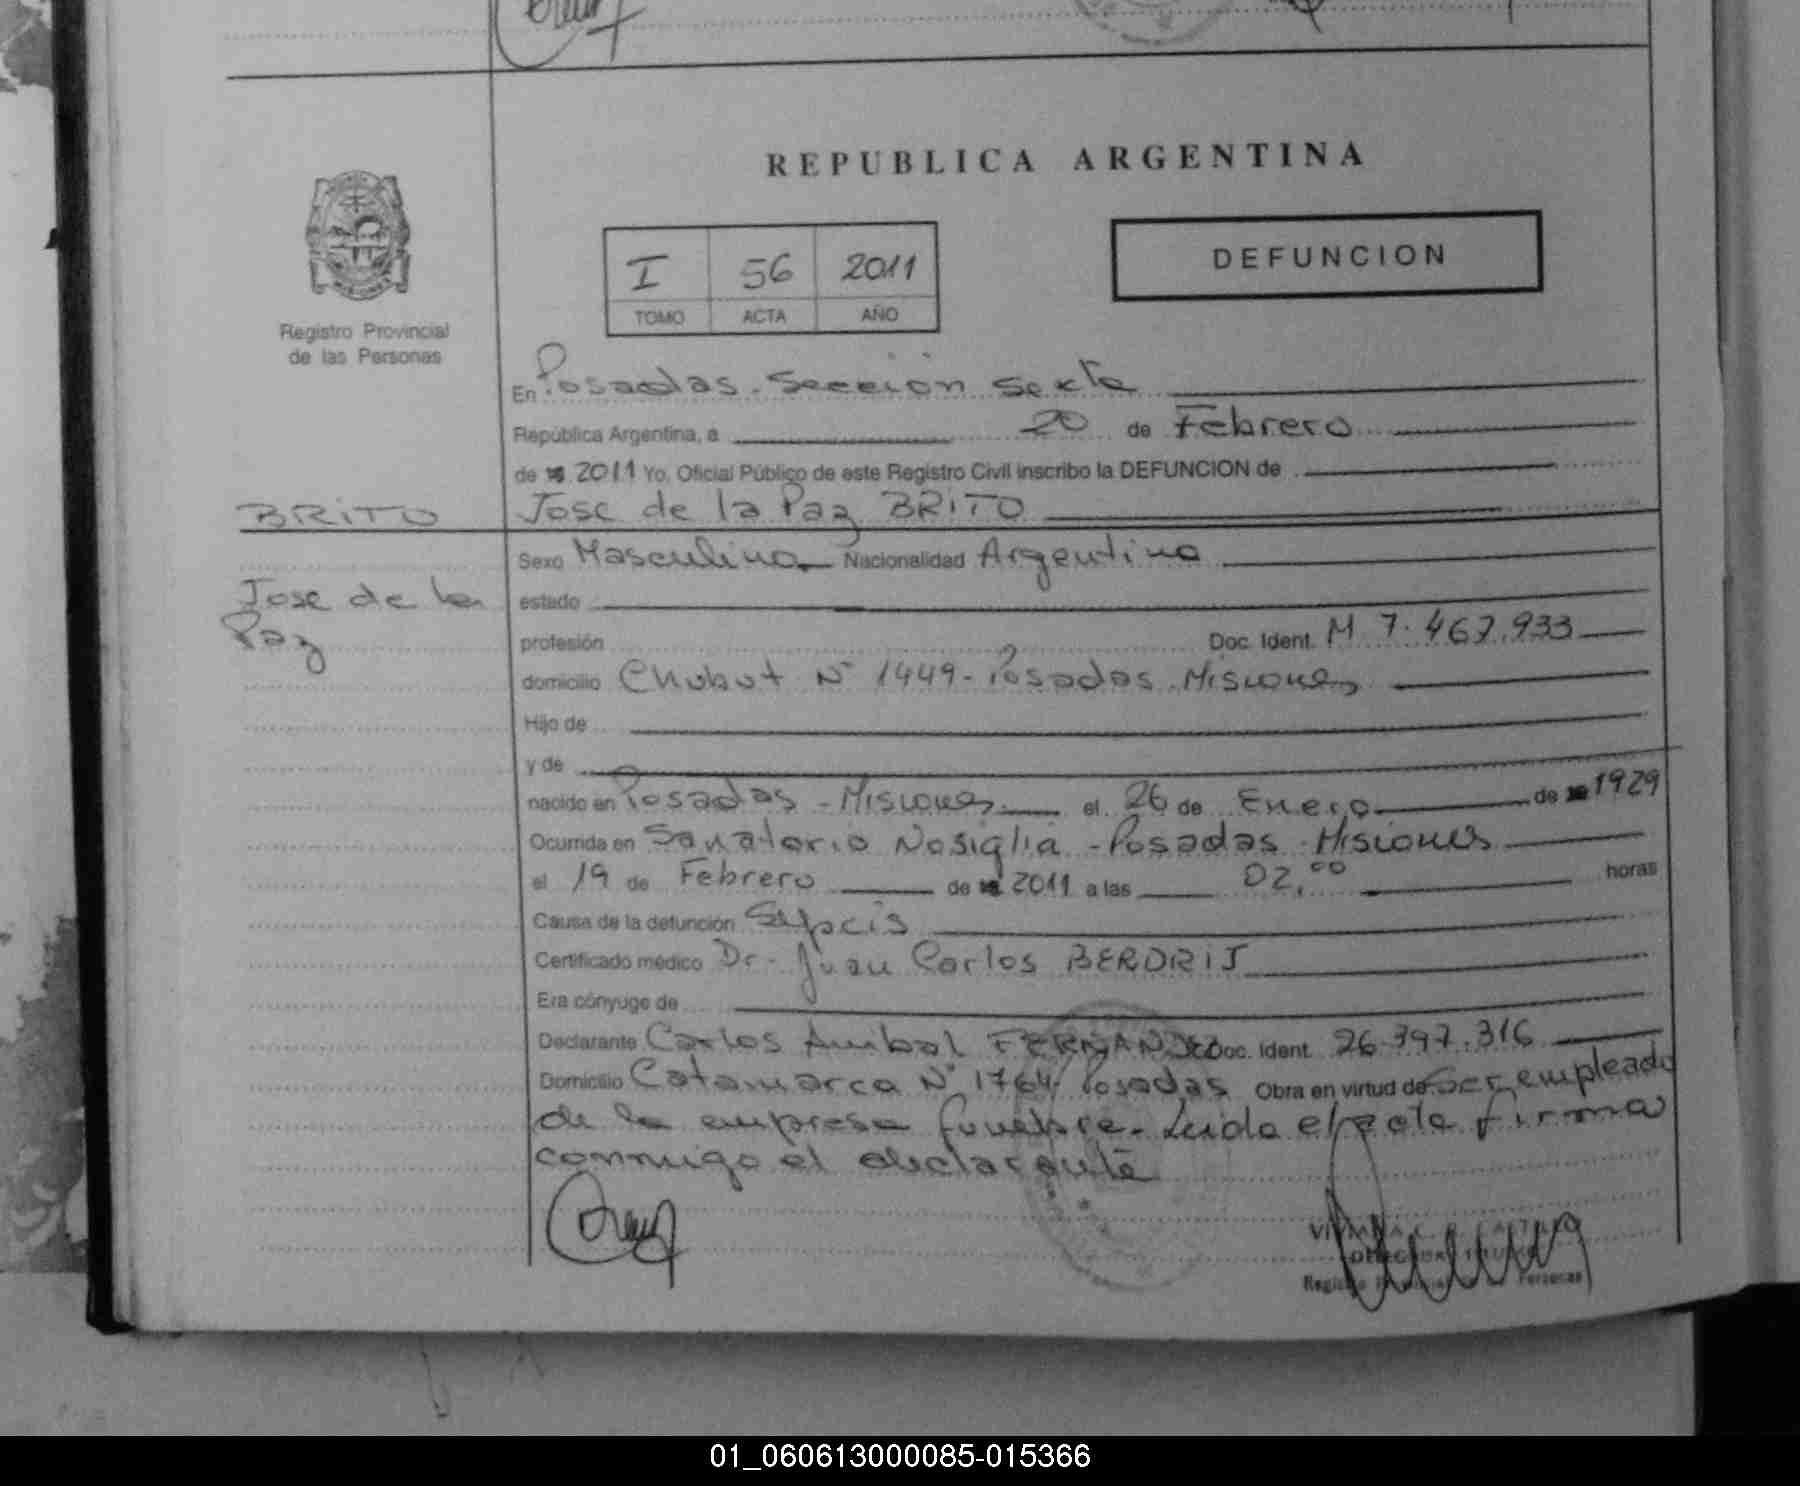 REPUBLICA ARGENTINA
I 56 2011
TOMO ACTA AÑO
DEFUNCION
Registro Provincial
de las Personas
En Posadas. Sección Sexta
República Argentina, a 20 de Febrero
de 2011 Yo, Oficial Público de este Registro Civil inscribo la DEFUNCION de
BRITO
Jose de la Paz BRITO
Jose de la
Paz
Sexo Masculino Nacionalidad Argentina
estado
profesión Doc. Ident. M 7.467.933
domicilio Chubut Nº 1449 - Posadas. Misiones
Hijo de
y de
nacido en Posadas - Misiones el 26 de Enero de 1929
Ocurrida en Sanatorio Nosiglia - Posadas - Misiones
el 19 de Febrero de 2011 a las 02,00 horas
Causa de la defunción Sepcis
Certificado médico Dr. Juan Carlos
Era cónyuge de
Declarante Carlos Anibal FERNANDEZ Doc. Ident. 26.797.316
Domicilio Catamarca Nº 1764 Posadas Obra en virtud de ser empleado
de la empresa funebre. Leida el acta firma
conmigo el declarante
01_060613000085-015366